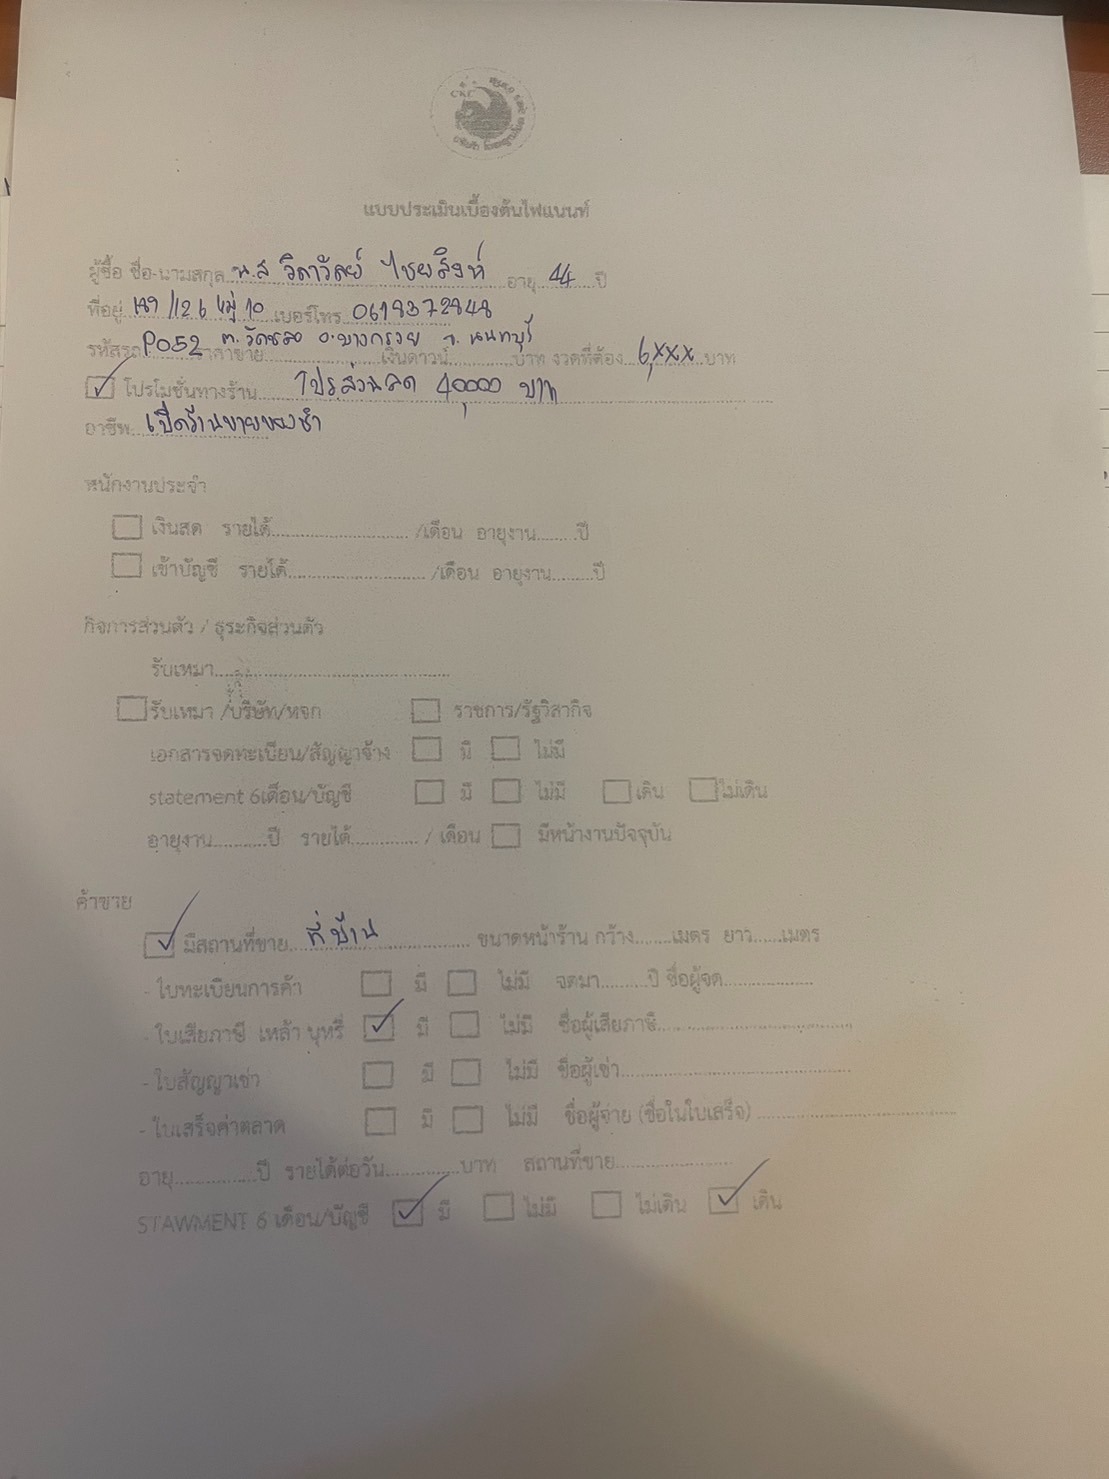 CKC
แบบประเมินเบื้องต้นไฟแนนท์
ผู้ซื้อ ชื่อ-นามสกุล น.ส วิลาวัลย์ ไชยสิงห์ อายุ 44 ปี
ที่อยู่ 189/126 หมู่ 10 เบอร์โทร 0618372848
ต.วัดชลอ อ.บางกรวย จ.นนทบุรี
รหัสรถ P052 ราคาขาย..........เงินดาวน์..........บาท งวดที่ต้อง 6,xxx บาท
☑ โปรโมชั่นทางร้าน โปรส่วนลด 40,000 บาท
อาชีพ เปิดร้านขายของชำ
พนักงานประจำ
☐ เงินสด รายได้............/เดือน อายุงาน........ปี
☐ เข้าบัญชี รายได้............/เดือน อายุงาน........ปี
กิจการส่วนตัว / ธุระกิจส่วนตัว
รับเหมา..............................
☐ รับเหมา /บริษัท/หจก ☐ ราชการ/รัฐวิสากิจ
เอกสารจดทะเบียน/สัญญาจ้าง ☐ มี ☐ ไม่มี
statement 6เดือน/บัญชี ☐ มี ☐ ไม่มี ☐ เดิน ☐ ไม่เดิน
อายุงาน..........ปี รายได้............/ เดือน ☐ มีหน้างานปัจจุบัน
ค้าขาย
☑ มีสถานที่ขาย ที่บ้าน ขนาดหน้าร้าน กว้าง.......เมตร ยาว......เมตร
- ใบทะเบียนการค้า ☐ มี ☐ ไม่มี จดมา.........ปี ชื่อผู้จด..............
- ใบเสียภาษี เหล้า บุหรี่ ☑ มี ☐ ไม่มี ชื่อผู้เสียภาษี....................
- ใบสัญญาเช่า ☐ มี ☐ ไม่มี ชื่อผู้เช่า....................
- ใบเสร็จค่าตลาด ☐ มี ☐ ไม่มี ชื่อผู้จ่าย (ชื่อในใบเสร็จ)....................
อายุ..............ปี รายได้ต่อวัน............บาท สถานที่ขาย..................
STAWMENT 6 เดือน/บัญชี ☑ มี ☐ ไม่มี ☐ ไม่เดิน ☑ เดิน